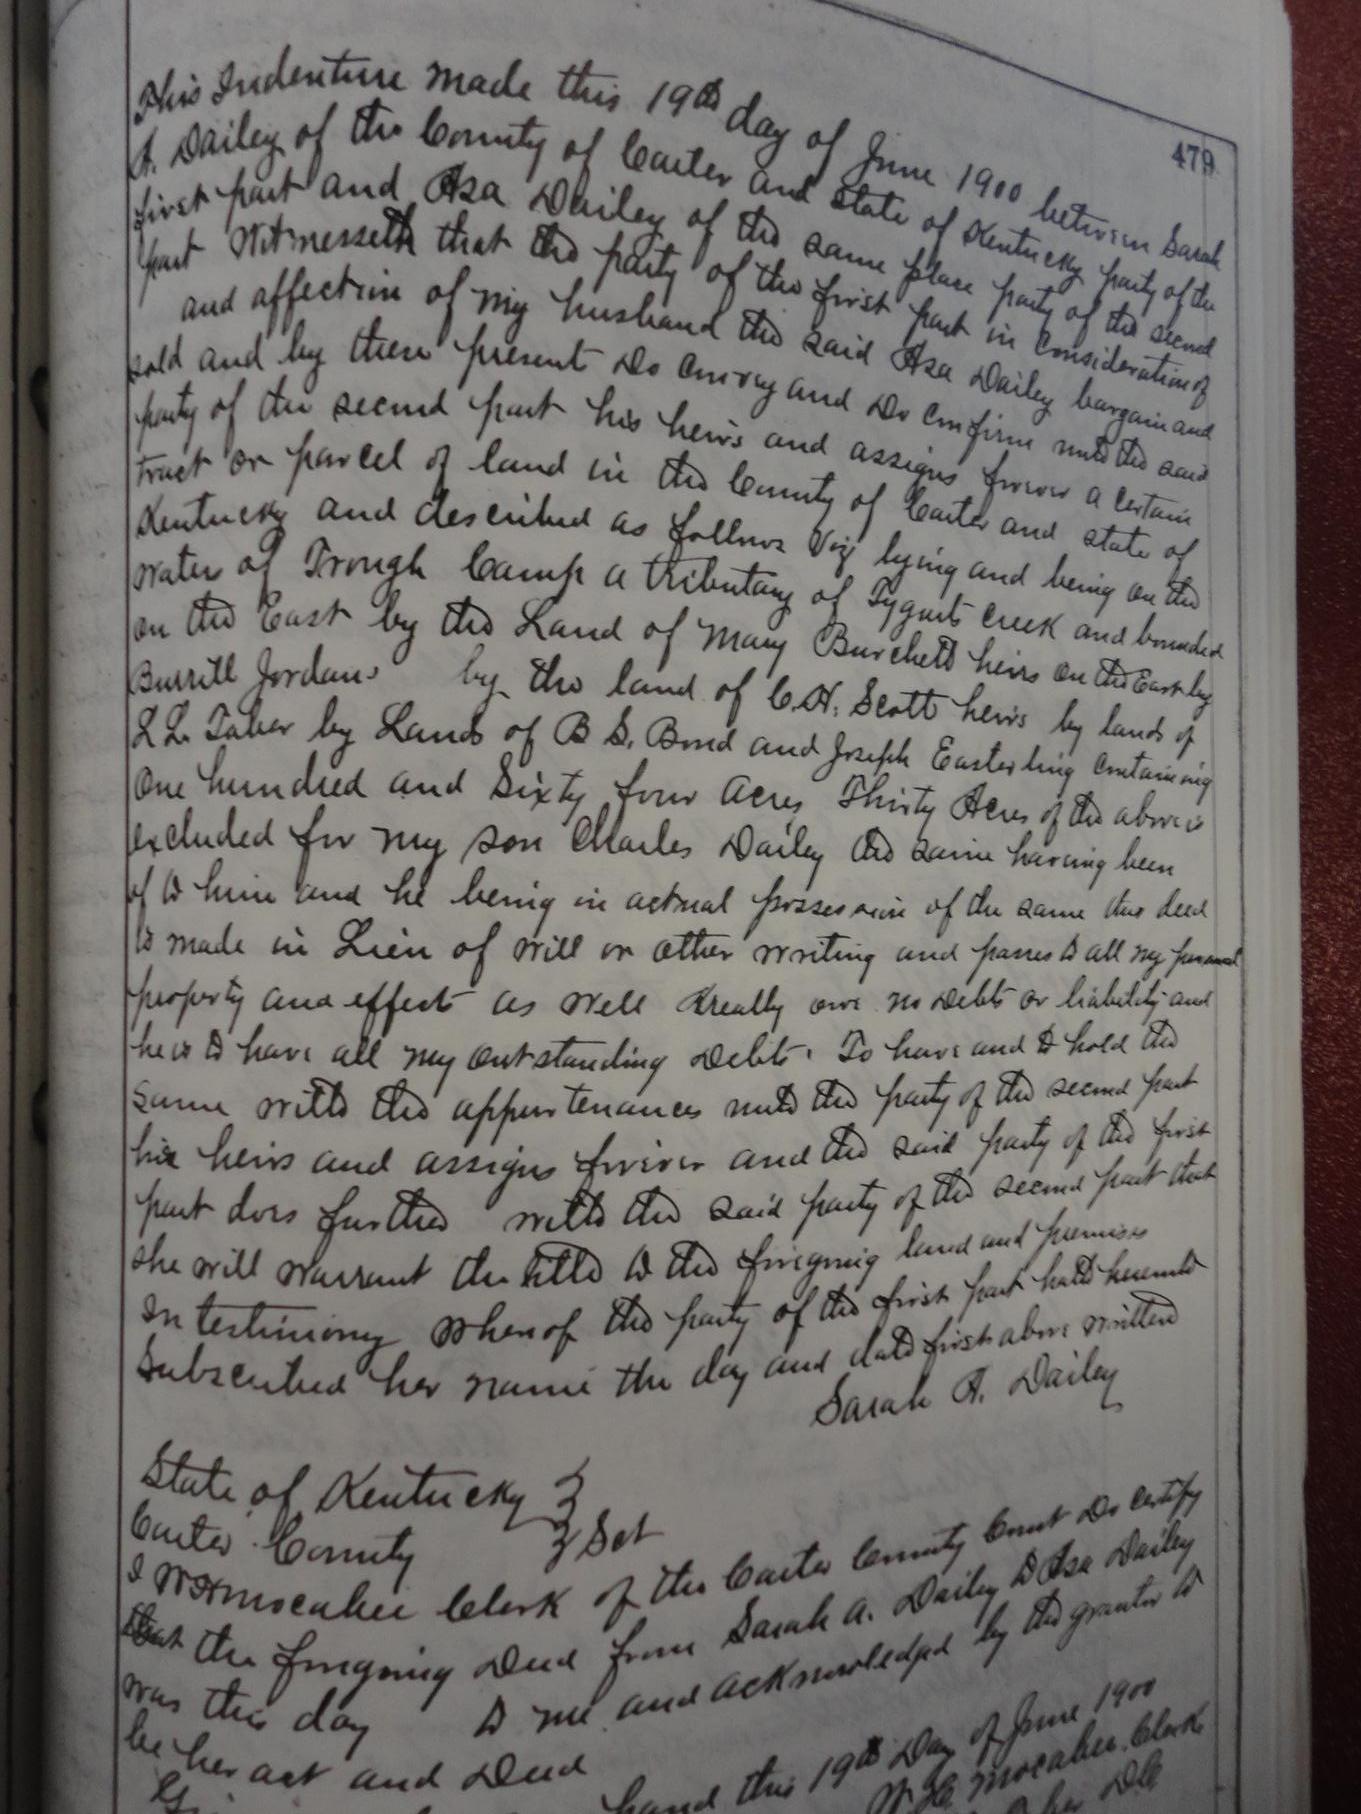 479
This Indenture made this 19th day of June 1900 between Sarah
A. Dailey of the County of Carter and state of Kentucky party of the
first part and Asa Dailey of the same place party of the second
part Witnesseth that the party of the first part in consideration of
and affection of my husband the said Asa Dailey bargain and
sold and by these present Do convey and Do confirm unto the said
party of the second part his heirs and assigns forever a certain
tract or parcel of land in the County of Carter and state of
Kentucky and described as follows Viz lying and being on the
water of Trough Camp a tributary of Tygarts Creek and bounded
on the East by the Land of Mary Burchett heirs on the East by
Burrill Jordans by the land of C.H. Scott heirs by lands of
L L. Taber by Lands of B S. Bond and Joseph Easterling containing
One hundred and Sixty four Acres Thirty Acres of the above is
excluded for my son Charles Dailey the same having been
of to him and he being in actual possession of the same this deed
is made in Lieu of will or other writing and passes to all my personal
property and effect as well I really owe no Debts or liability and
he is to have all my outstanding Debts. To have and to hold the
same with the appurtenances unto the party of the second part
his heirs and assigns forever and the said party of the first
part does further with the said party of the second part that
she will warrant the title to the foregoing land and premises
In testimony whereof the party of the first part hath hereunto
Subscribed her name the day and date first above written
Sarah A. Dailey
State of Kentucky }
Carter County } Sct
I Clerk of the Carter County Court Do certify
that the foregoing Deed from Sarah A. Dailey to Asa Dailey
was this day to me and acknowledged by the grantor to
be her act and Deed
hand this 19th Day of June 1900
Clerk
DC